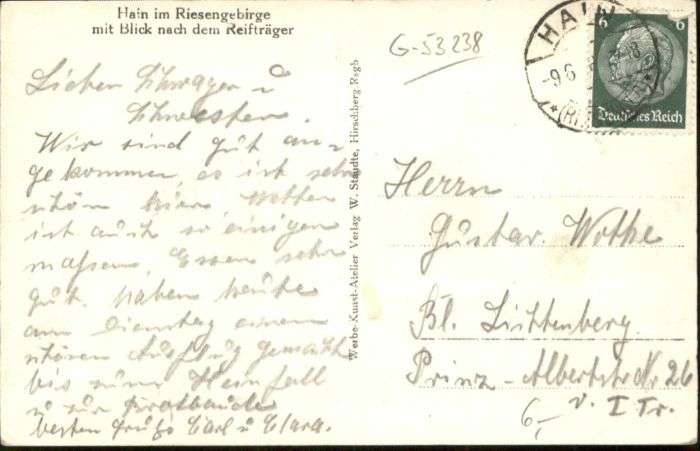 Hain im Riesengebirge
mit Blick nach dem Reifträger
G-53238
HAIN
-9.6
6 6
Deutsches Reich
Lieber Schwager u
Schwester.
Wir sind gut an=
gekommen es ist sehr
schön hier Wetter
ist auch so einiger
massen, Essen sehr
gut. Haben heute
am Dienstag einen
schönen Ausflug gemacht
bis zum Hainfall
u zur
besten Gruß Carl u Clara.
Werbe-Kunst-Atelier Verlag W. Staudte, Hirschberg Rsgb
Herrn
Gustav Wothe
Bl. Lichtenberg
Prinz-Albertstr Nr 26
v. I Tr.
6,-